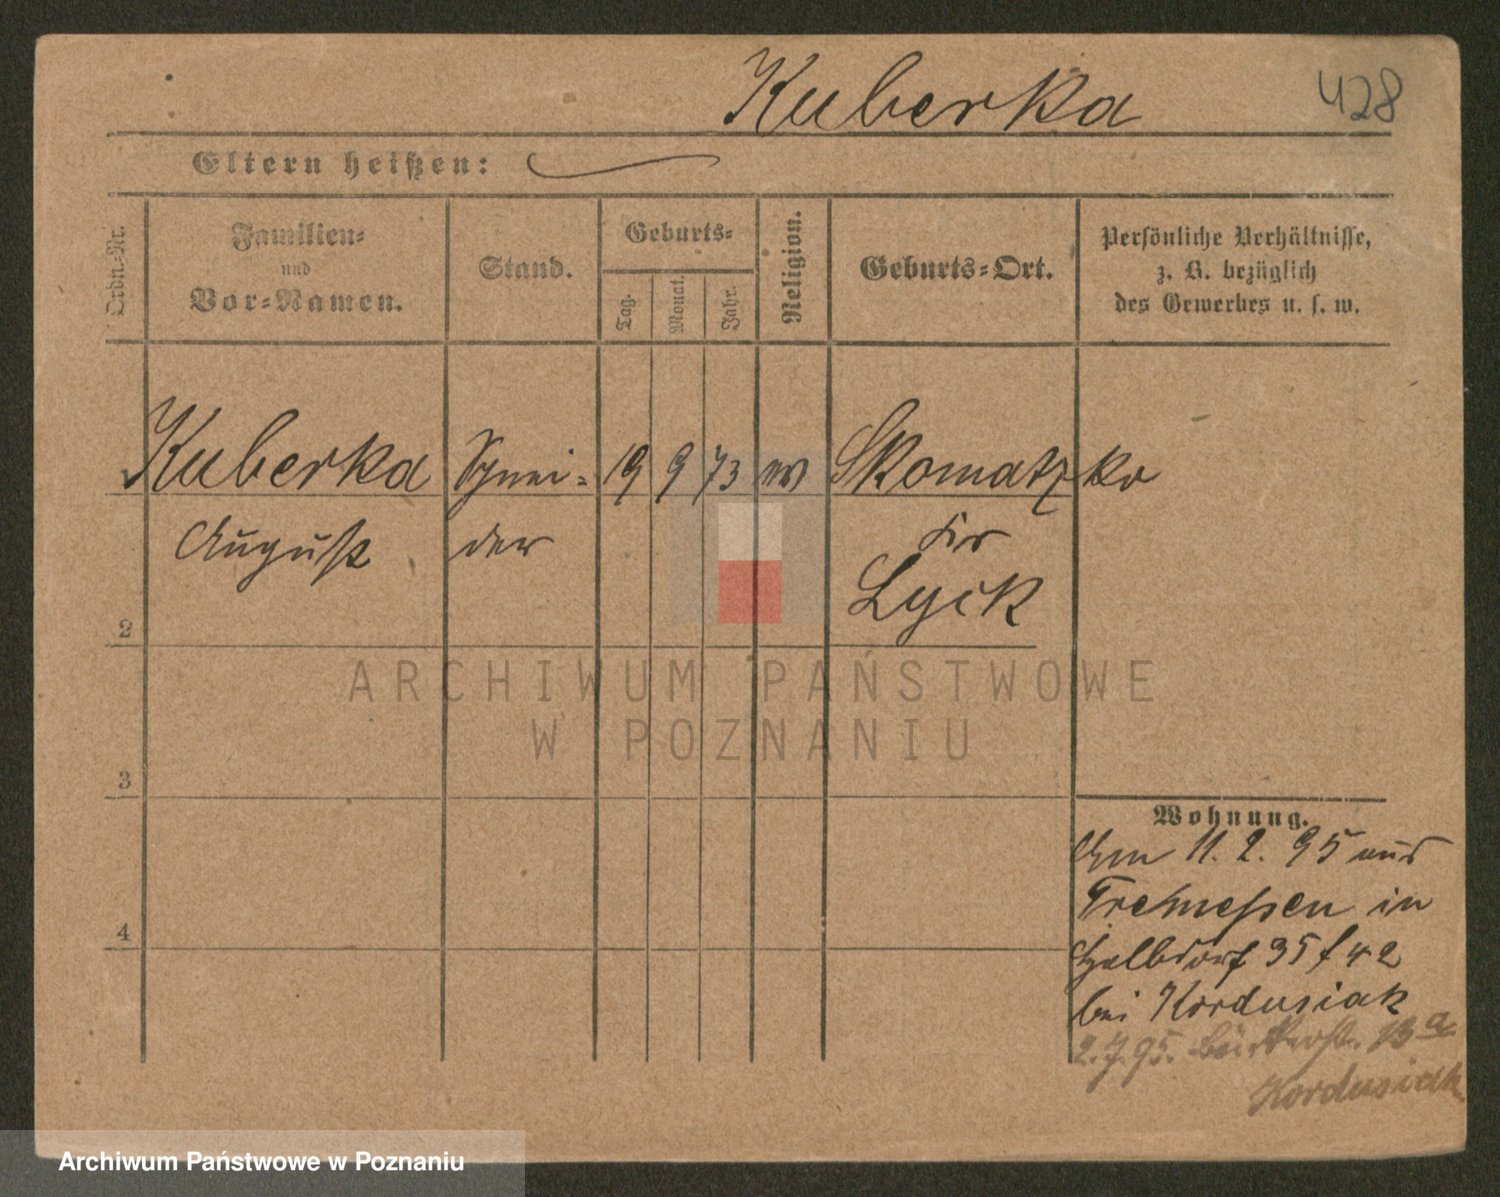 Kuberka 428
Eltern heißen:
Ordn.-Nr.
Familien-
und
Vor-Namen.
Stand.
Geburts-
Tag.
Monat.
Jahr.
Religion.
Geburts-Ort.
Persönliche Verhältnisse,
z. B. bezüglich
des Gewerbes u. s. w.
Kuberka Schnei- 19 9 73 ev Skomatzko
August der Kr
Lyck
2
3
4
Wohnung.
Am 11. 2. 95 aus
Tremeßen in
Halbdorf 35 f 42
bei Kordusiak
2. 7. 95. Bäckerst. 13a
Kordusiak
ARCHIWUM PAŃSTWOWE
W POZNANIU
Archiwum Państwowe w Poznaniu